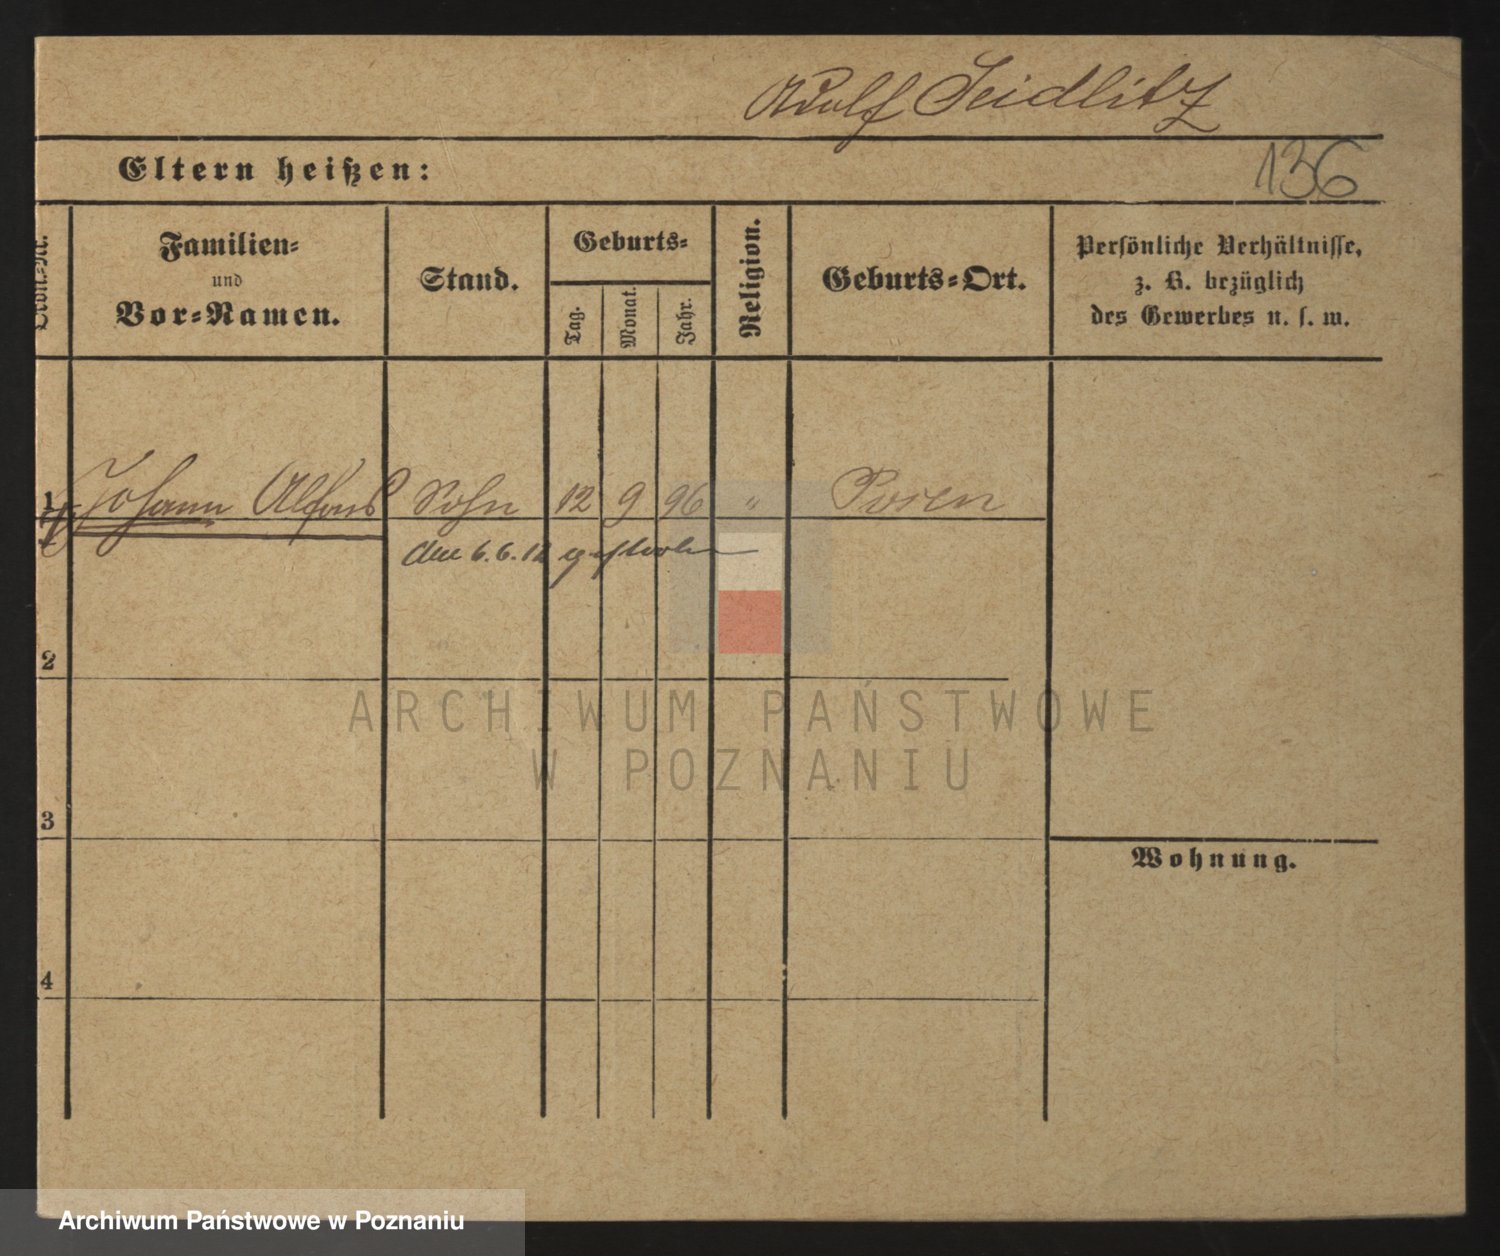 Adolf Seidlitz
Eltern heißen:
136
Familien=
und
Vor=Namen.
Stand.
Geburts=
Tag.
Monat.
Jahr.
Religion.
Geburts=Ort.
Persönliche Verhältnisse,
z. B. bezüglich
des Gewerbes u. s. w.
1 Johann Alfons Sohn 12 9 96 " Posen
den 6.6.12 gestorben
2
3
4
Wohnung.
ARCHIWUM PAŃSTWOWE
W POZNANIU
Archiwum Państwowe w Poznaniu